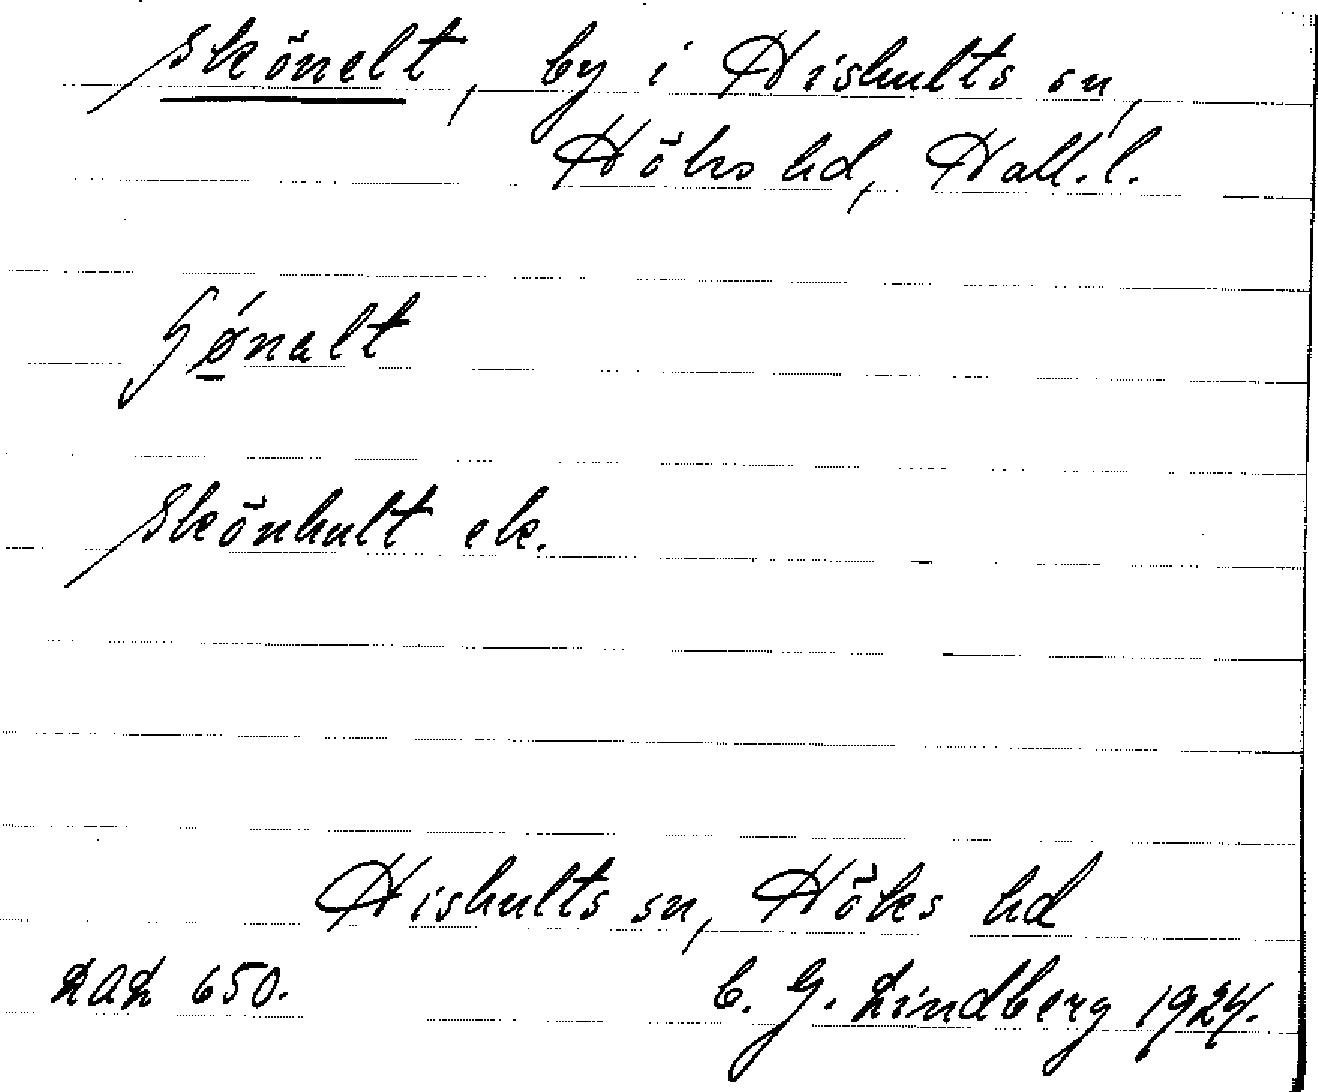 Skönelt, by i Hishults sn,
Höks hd, Hall.l.
ʃǿnalt
Skönhult ek.
Hishults sn, Höks hd
LAL 650.
C. G. Lindberg 1924.